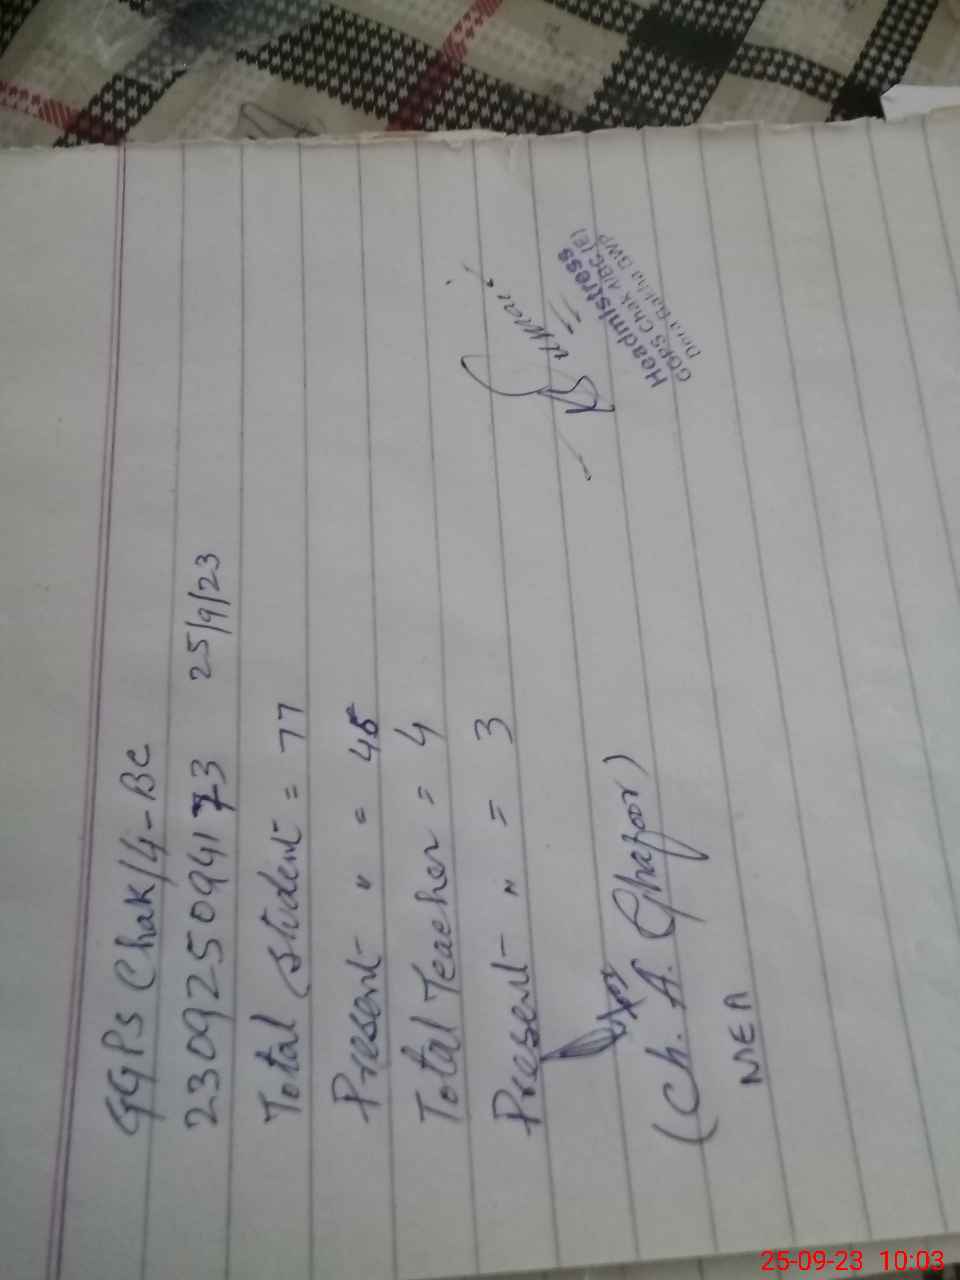 GGPS Chak/4-BC
230925094173 25/9/23
Total Student = 77
Present " = 45
Total Teacher = 4
Present " = 3
(Ch. A. Ghafoor)
MEA
Headmistress
GGPS Chak 4/BC (E)
BWP
25-09-23 10:03